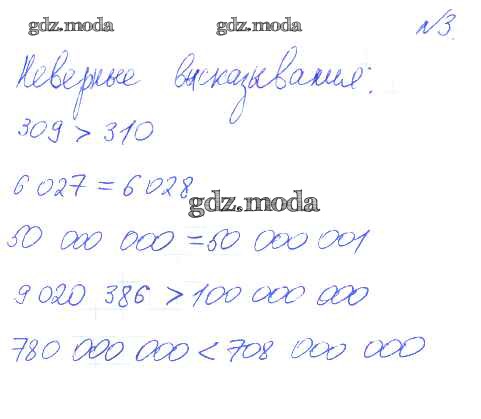 gdz.moda gdz.moda №3.
Неверные высказывания:
309 > 310
6 027 = 6 028
gdz.moda
50 000 000 = 50 000 001
9 020 386 > 100 000 000
780 000 000 < 708 000 000